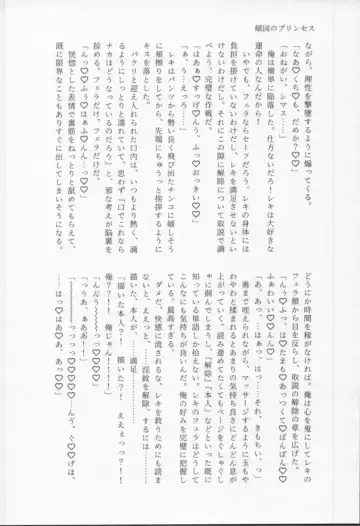 傾国のプリンセス
ながら、理性を撃墜するように煽ってくる。
「なあ♡くちでも、だめか？♡♡」
「おねがい、シマス……」
俺は簡単に陥落した。仕方ないだろ！レキは大好きな
運命の人なんだから！
それに、フェラならセーフだろう。レキの身体には
負担を掛けていないわけだし、レキを満足させないとい
けないわけだし。それにこの隙に解除について取説で調
べよう。完璧な作戦だ。
「はあぁ♡すげ♡んぅ、ふっ♡おっきい♡♡」
「あ、うぇえろ……」
レキはパンツから勢い良く飛び出たチンコに嬉しそう
に、うっとりして、先端にちゅうっと挨拶するように
キスを落とした。
パクリと迎え入れられた口内は、いつもより熱く、滴
るようにしとりと濡れていて、思わず「口でこれなら
ナカはどうなっているのだろう」と、邪な考えが脳裏を
掠める。フェラだけだ。フェラだけ。
「んむ♡♡はぁふ♡んん、んっ♡♡」
恍惚とした表情で裏筋をねっとりと舐めてもらえて、
既に限界なこともありすぐに出してしまいそうになる。
どうにか時間を稼がなければ。俺は心を鬼にしてレキの
フェラ顔から目を反らし、取説の解除の章を広げた。
「んっ♡ふっ、は♡たまも♡あっつくて♡ぱんぱん♡♡
ふぁわいい♡♡んむっ♡♡」
「あ、あっ、……はっ、……それ、きもちいっ」
奥まで咥えられながら、マッサージするように玉もや
わやわと揉まれるとあまりの気持ち良さにどんどん息が
上がっていく。読み進めてたくてもページをぐしゃぐし
ゃに掴んでしまうし、「解除」「本人」などといった既に
知っている単語しか拾えない。レキのフェラはどうして
こんなにも気持ちが良いんだ。俺の好みを完璧に把握し
ている。最高すぎる。
ダメだ、快感に流されるな、レキを救うためにも読ま
ないと、ええっと……淫紋を解除、するには……
描いた、本人が、……満足、
「描いた本人？！　描いた？！　ええぇっっ？！
俺？？！！　俺じゃん！！！！」
「んんうぅ〜〜っっっ♡♡♡♡」
「っうあ、ああぉ！！」
「んんっ！！♡♡♡♡〜〜〜〜っ♡、んぅ、ぐ♡げほ、
……はっ♡はぁ♡あ、あっ♡♡♡♡」